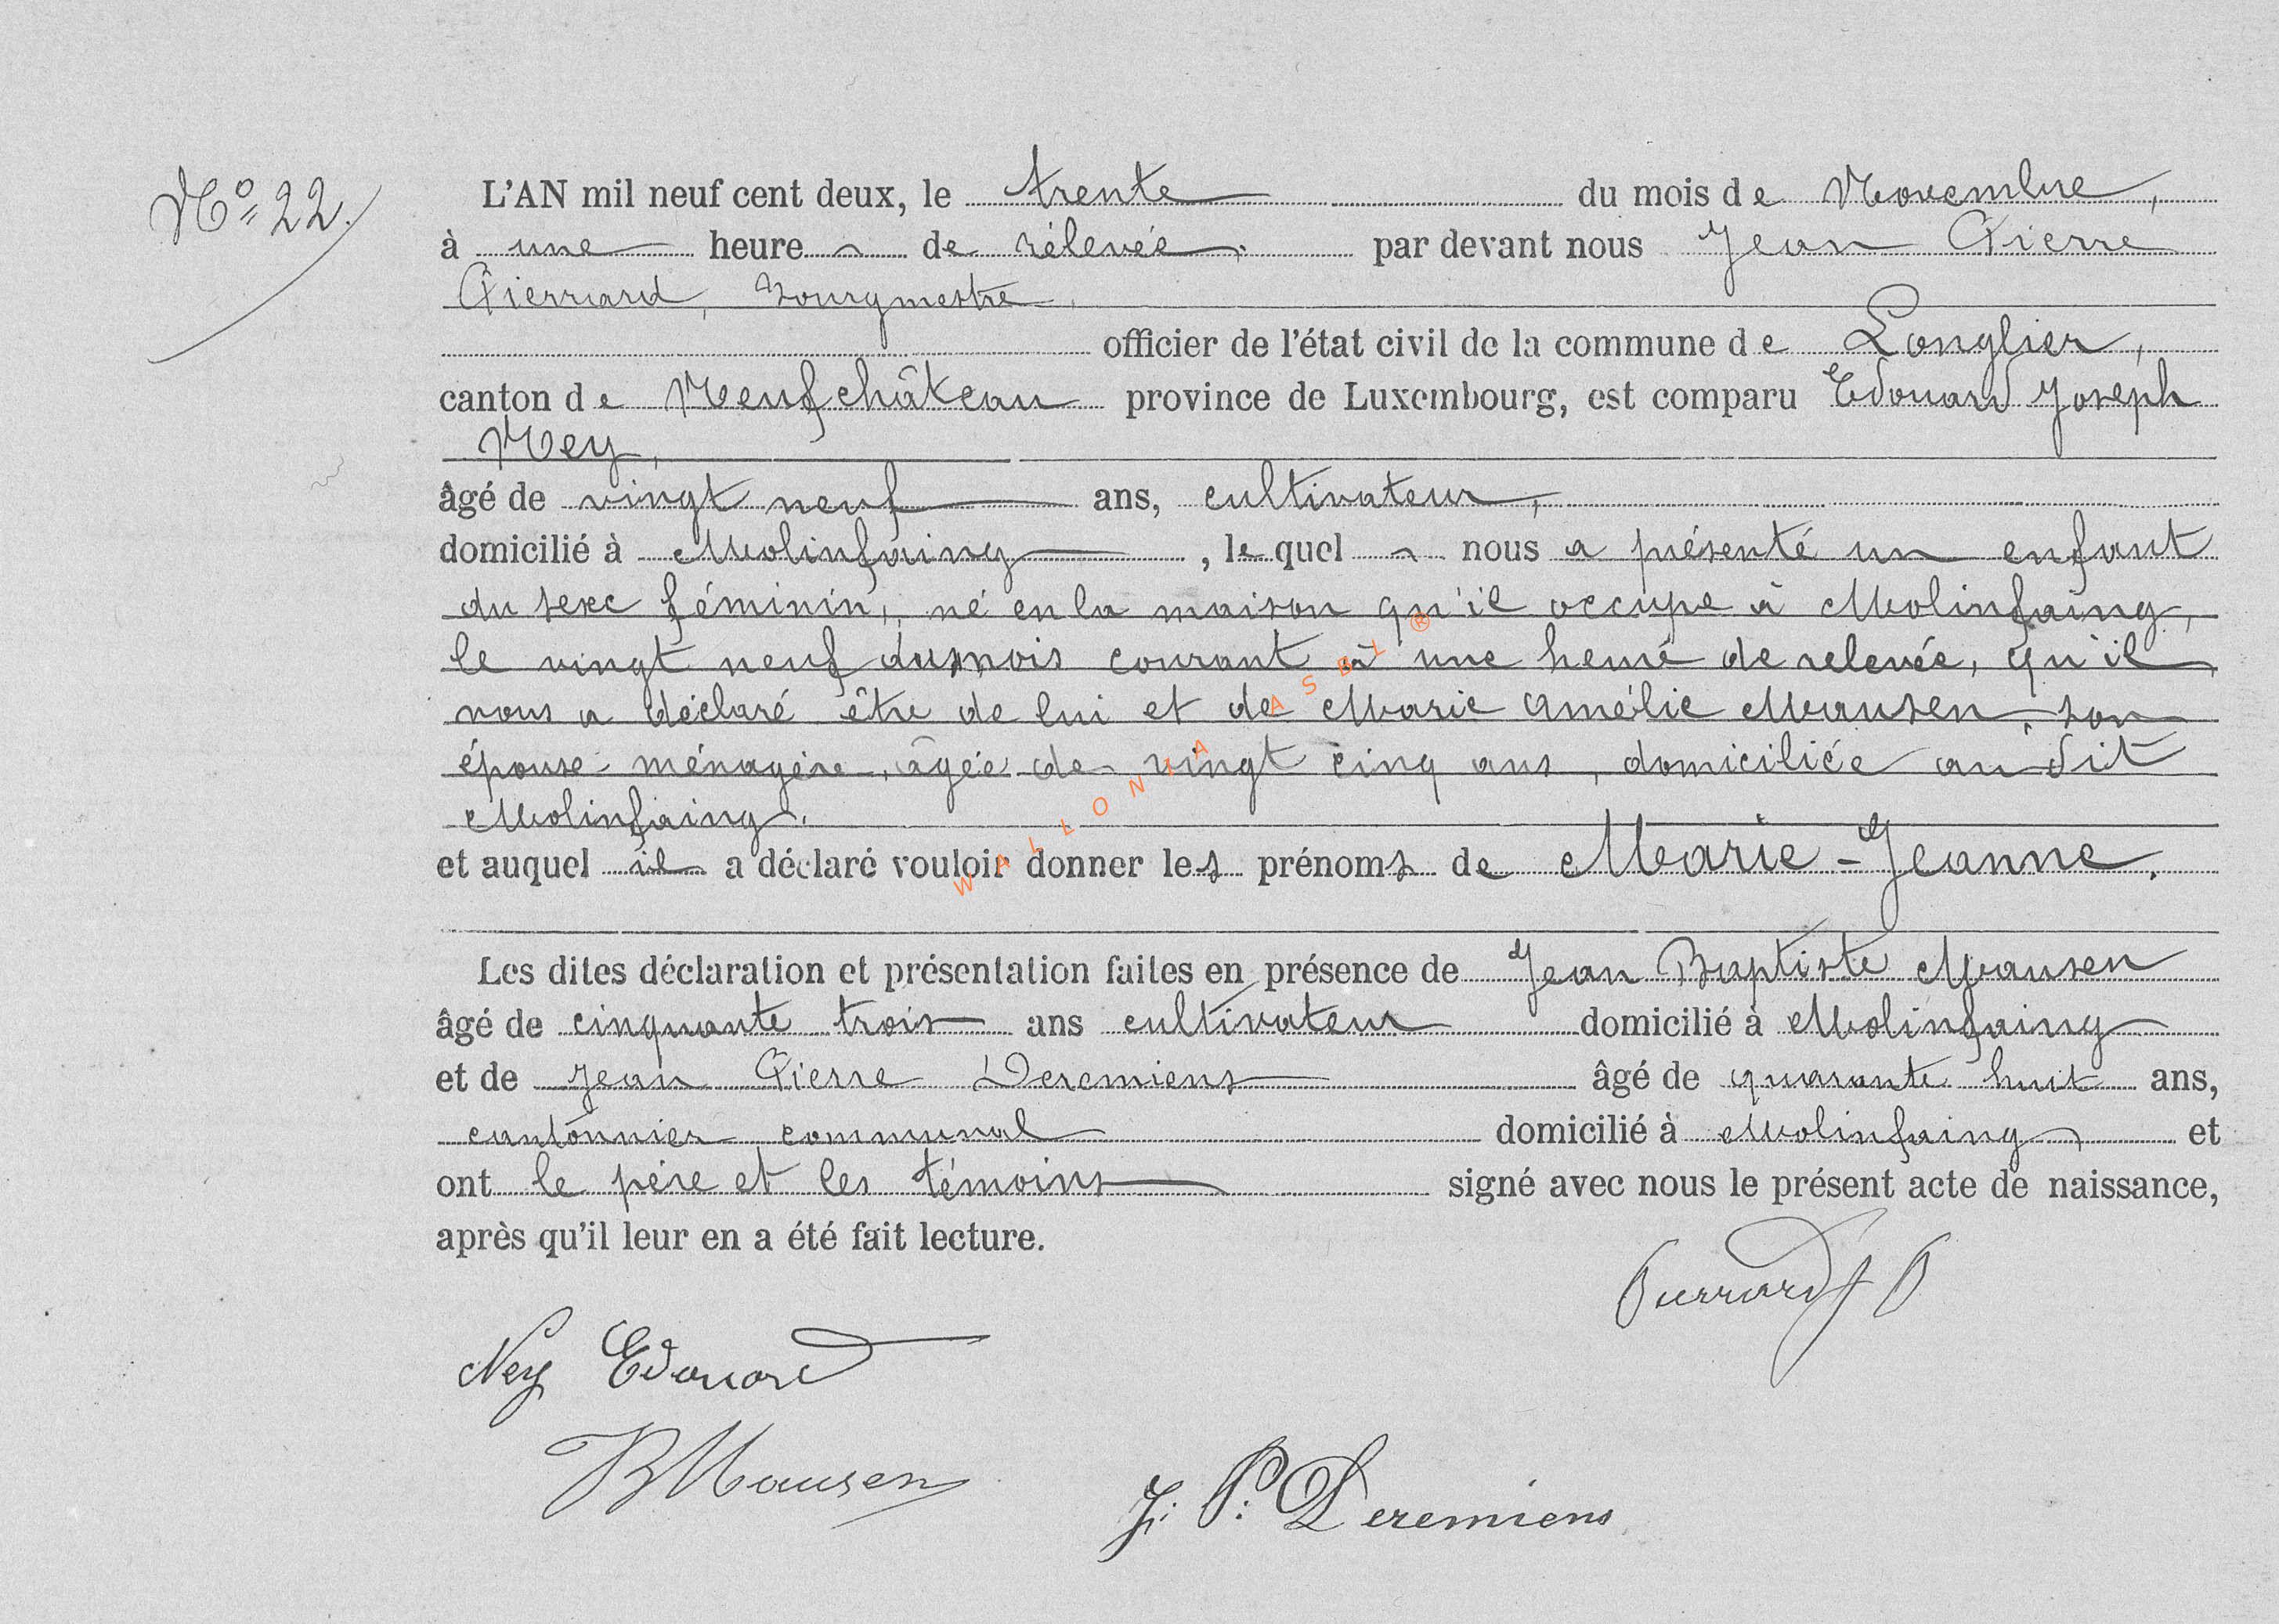 Nº 22.
L'AN mil neuf cent deux, le trente du mois de Novembre,
à une heure de rélevée. par devant nous Jean Pierre
Pierrard, bourgmestre,
officier de l'état civil de la commune de Longlier,
canton de Neufchâteau province de Luxembourg, est comparu Edouard Joseph
Ney,
âgé de vingt neuf ans, cultivateur,
domicilié à Molinfaing, lequel nous a présenté un enfant
du sexe féminin, né en la maison qu'il occupe à Molinfaing,
le vingt neuf du mois courant à une heure de relevée, qu'il
nous a déclaré être de lui et de Marie Amélie Mausen, son
épouse ménagère, agée de vingt cinq ans, domiciliée au dit
Molinfaing.
et auquel il a déclaré vouloir donner les prénoms de Marie-Jeanne.
Les dites déclaration et présentation faites en présence de Jean Baptiste Mausen
âgé de cinquante trois ans cultivateur domicilié à Molinfaing
et de Jean Pierre Deremiens âgé de quarante huit ans,
cantonnier communal domicilié à Molinfaing et
ont le père et les témoins signé avec nous le présent acte de naissance,
après qu'il leur en a été fait lecture.
Pierrard J P
Ney Edouard
JBMausen
J. P. Deremiens
WALLONIA ASBL ®